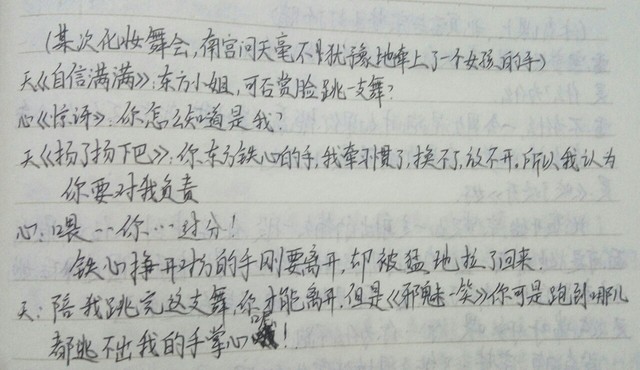 (某次化妆舞会,南宫问天毫不犹豫地牵上了一个女孩的手)
天《自信满满》:东方小姐,可否赏脸跳一支舞?
心《惊讶》:你怎么知道是我?
天《扬了扬下巴》:你东方铁心的手,我牵习惯了,换不了,放不开,所以我认为
你要对我负责
心:喂……你……过分!
铁心挣开对方的手刚要离开,却被猛地拉了回来.
天:陪我跳完这支舞,你才能离开,但是《邪魅一笑》你可是跑到哪儿
都逃不出我的手掌心呢!